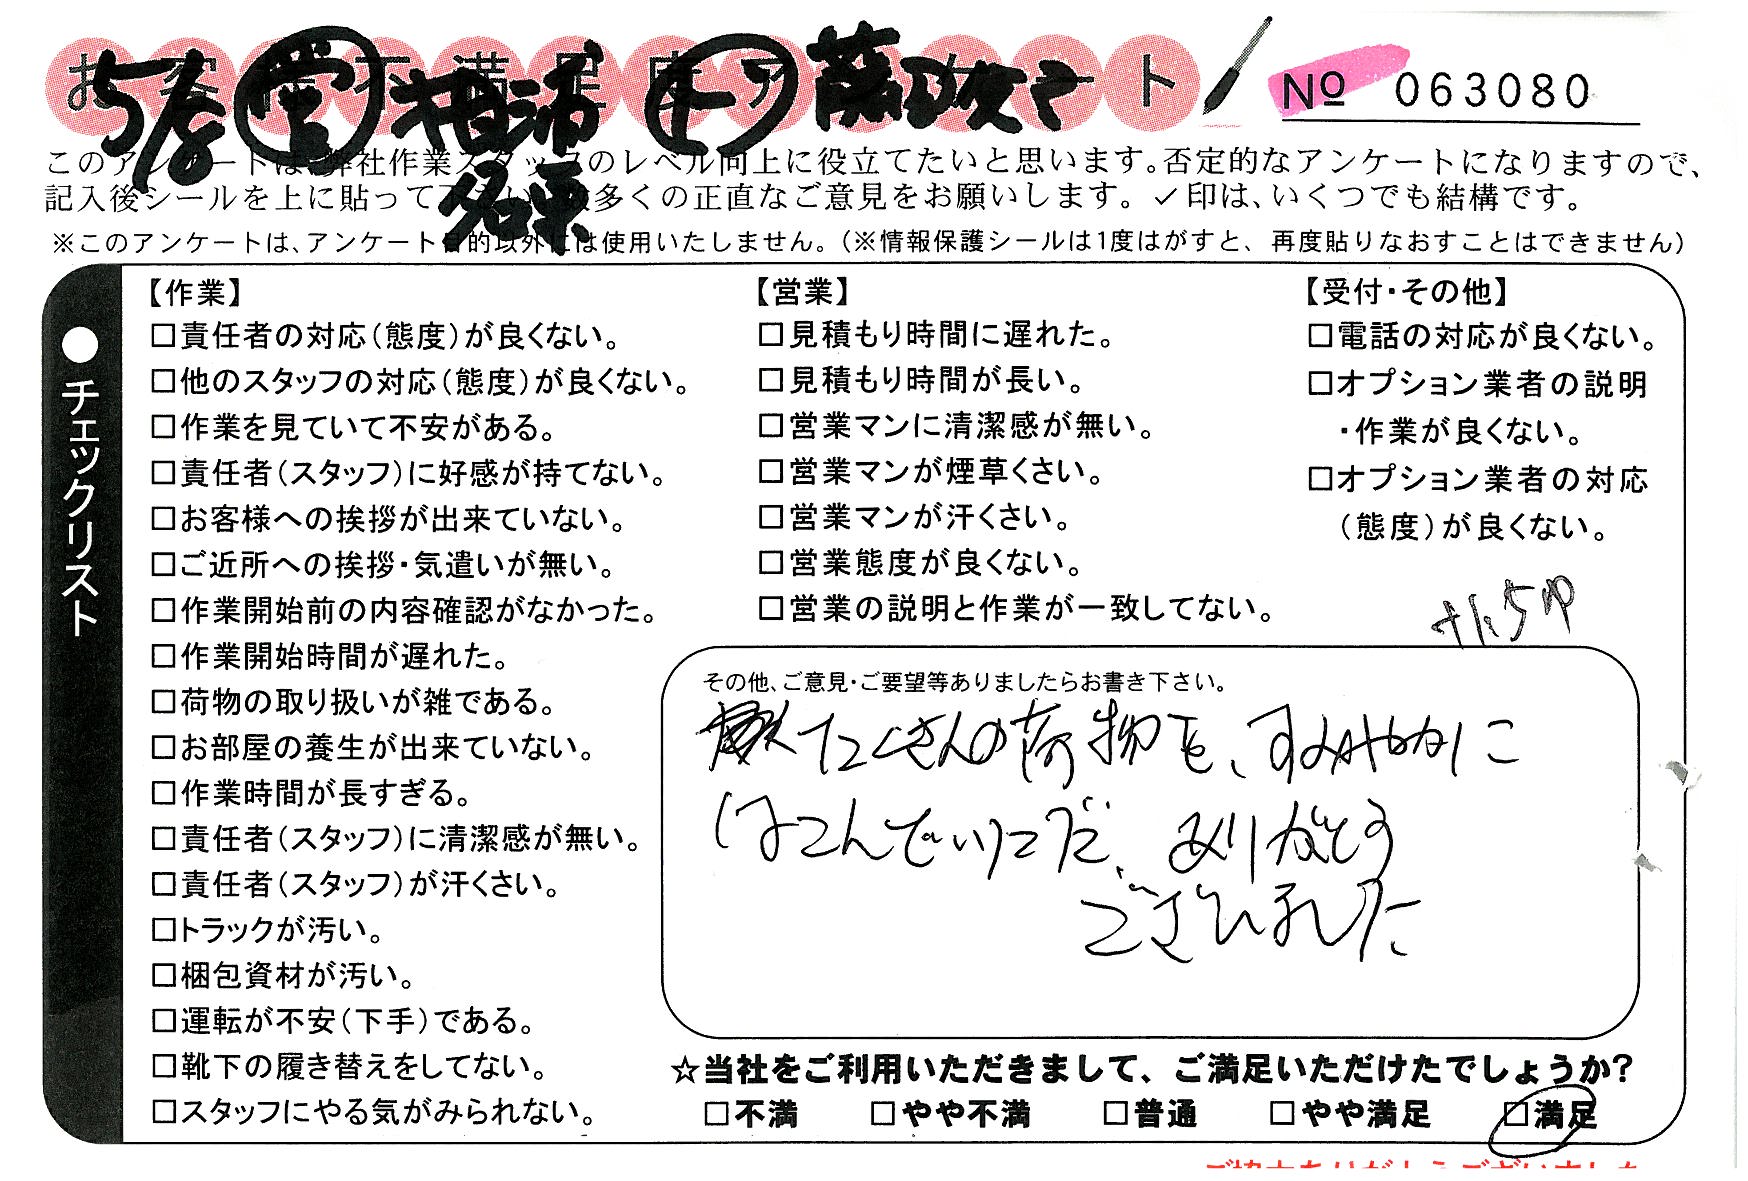 お客様不満足度アンケート
№ 063080
5/8 営 相浦 名原
このアンケートは、弊社作業スタッフのレベル向上に役立てたいと思います。否定的なアンケートになりますので、
記入後シールを上に貼って下さい。数多くの正直なご意見をお願いします。✓印は、いくつでも結構です。
※このアンケートは、アンケート目的以外には使用いたしません。（※情報保護シールは1度はがすと、再度貼りなおすことはできません）
●チェックリスト
【作業】
□責任者の対応（態度）が良くない。
□他のスタッフの対応（態度）が良くない。
□作業を見ていて不安がある。
□責任者（スタッフ）に好感が持てない。
□お客様への挨拶が出来ていない。
□ご近所への挨拶・気遣いが無い。
□作業開始前の内容確認がなかった。
□作業開始時間が遅れた。
□荷物の取り扱いが雑である。
□お部屋の養生が出来ていない。
□作業時間が長すぎる。
□責任者（スタッフ）に清潔感が無い。
□責任者（スタッフ）が汗くさい。
□トラックが汚い。
□梱包資材が汚い。
□運転が不安（下手）である。
□靴下の履き替えをしてない。
□スタッフにやる気がみられない。
【営業】
□見積もり時間に遅れた。
□見積もり時間が長い。
□営業マンに清潔感が無い。
□営業マンが煙草くさい。
□営業マンが汗くさい。
□営業態度が良くない。
□営業の説明と作業が一致してない。
【受付・その他】
□電話の対応が良くない。
□オプション業者の説明
・作業が良くない。
□オプション業者の対応
（態度）が良くない。
その他、ご意見・ご要望等ありましたらお書き下さい。
たくさんの荷物を、すみやかに
はこんでいただ、ありがとう
ございました
☆当社をご利用いただきまして、ご満足いただけたでしょうか?
□不満 □やや不満 □普通 □やや満足 □満足